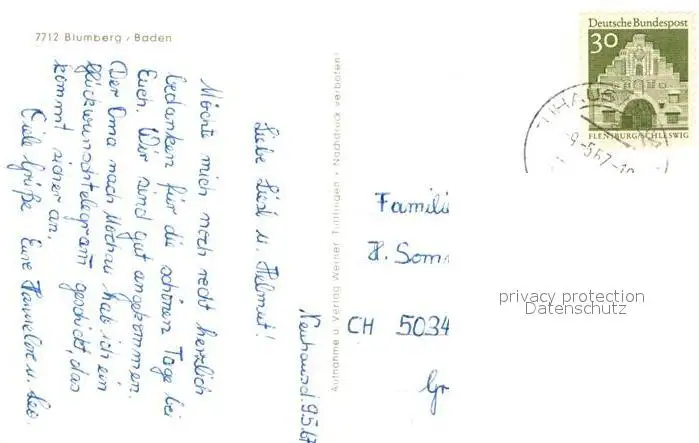 7712 Blumberg / Baden
Neuhausd. 9.5.67
Liebe Liesl u. Helmut!
Möchte mich noch recht herzlich
bedanken für die schönen Tage bei
Euch. Wir sind gut angekommen.
Der Oma nach hab ich ein
Glückwunschtelegram geschickt, das
kommt sicher an.
Viele Grüße Eure Hannelore u. Leo.
Aufnahme u. Verlag Werner, Tuttlingen · Nachdruck verboten!
Deutsche Bundespost
30
FLENSBURG/SCHLESWIG
-9-5.67-10
Famili
H. Som
CH 5034
Gr
privacy protection
Datenschutz